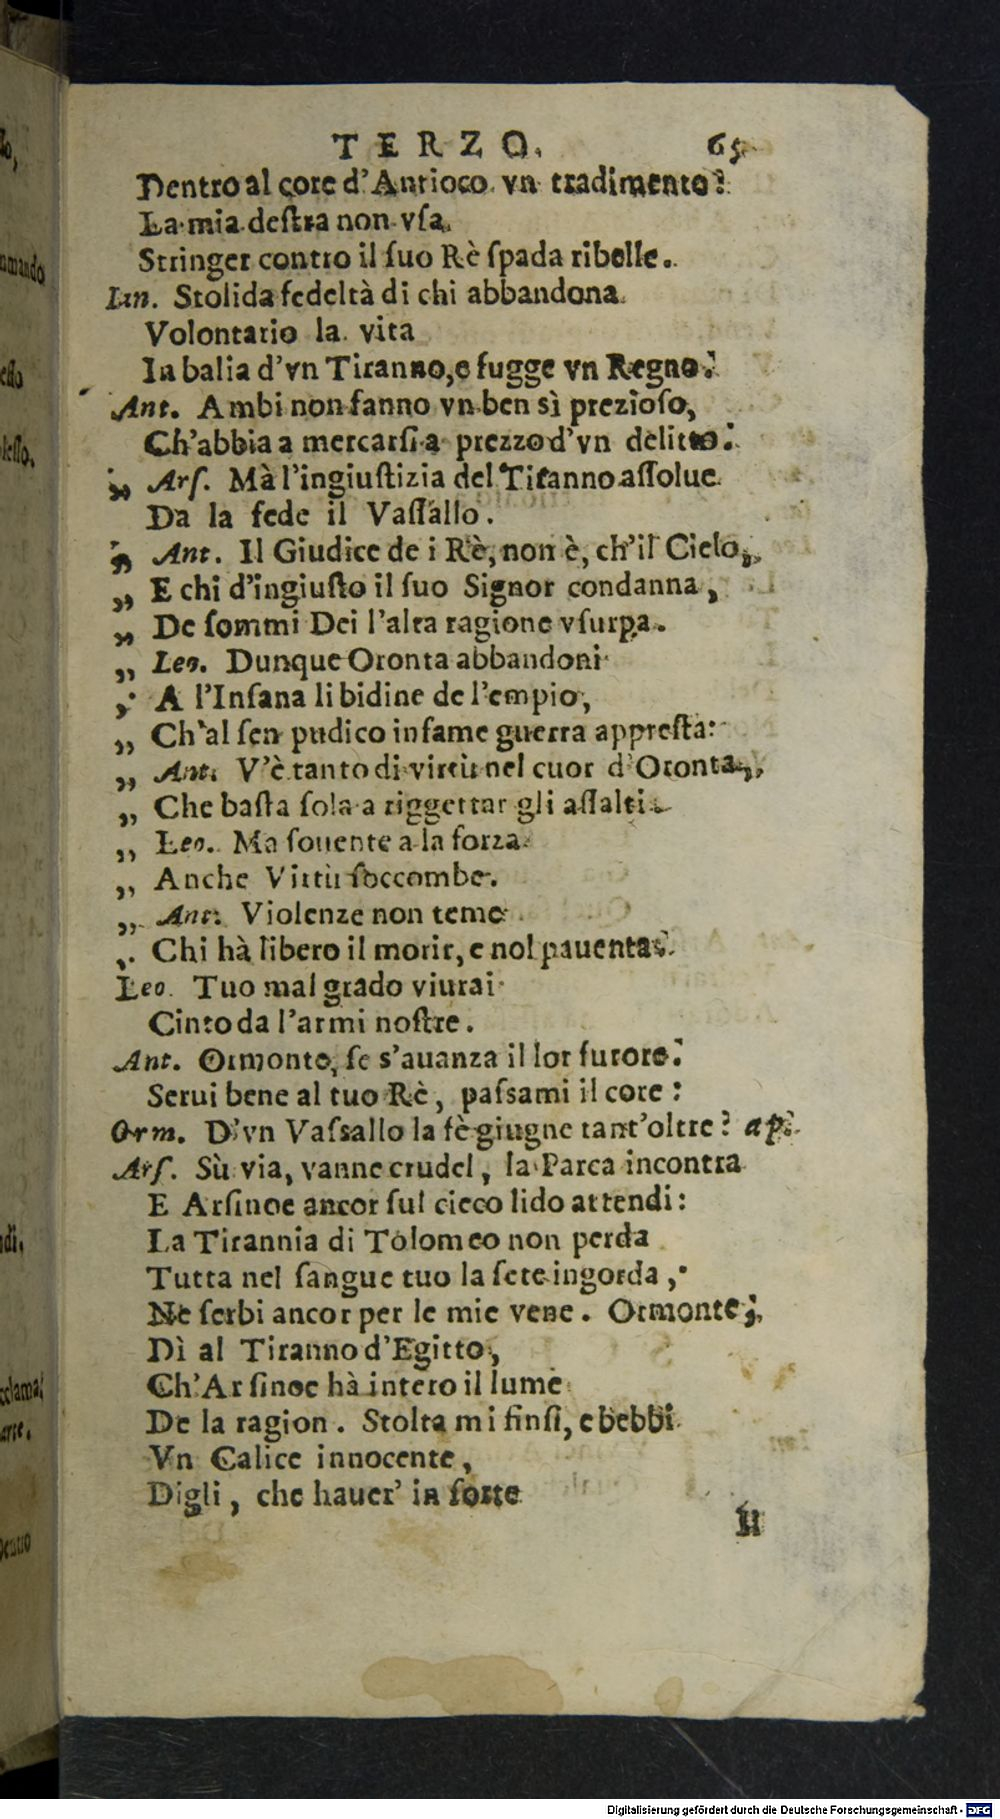 TERZO. 65
Dentro al core d'Antioco vn tradimento?
La mia deſtra non vſa
Stringer contro il ſuo Rè ſpada ribelle.
Lan. Stolida fedeltà di chi abbandona
Volontario la vita
In balia d'vn Tiranno, e fugge vn Regno!
Ant. Ambi non fanno vn ben sì prezioſo,
Ch'abbia a mercarſi a prezzo d'vn delitto.
„ Arſ. Mà l'ingiuſtizia del Tiranno aſſolue
Da la fede il Vaſſallo.
„ Ant. Il Giudice de i Rè, non è, ch'il Cielo,
„ E chi d'ingiuſto il ſuo Signor condanna,
„ De ſommi Dei l'alta ragione vſurpa.
„ Leo. Dunque Oronta abbandoni
„ A l'Inſana libidine de l'empio,
„ Ch'al ſen pudico infame guerra appreſta:
„ Ant. V'è tanto di virtù nel cuor d'Oronta,
„ Che baſta ſola a riggettar gli aſſalti.
„ Leo. Ma ſouente a la forza
„ Anche Virtù ſoccombe.
„ Ant. Violenze non teme
„ Chi hà libero il morir, e nol pauenta.
Leo. Tuo mal grado viurai
Cinto da l'armi noſtre.
Ant. Ormonte, ſe s'auanza il lor furore!
Serui bene al tuo Rè, paſsami il core:
Orm. D'vn Vaſsallo la fè giugne tant'oltre? ap.
Arſ. Sù via, vanne crudel, la Parca incontra
E Arſinoe ancor ſul cieco lido attendi:
La Tirannia di Tolomeo non perda
Tutta nel ſangue tuo la ſete ingorda,
Ne ſerbi ancor per le mie vene. Ormonte;
Dì al Tiranno d'Egitto,
Ch'Arſinoe hà intero il lume
De la ragion. Stolta mi finſi, e bebbi
Vn Calice innocente,
Digli, che hauer' in ſorte
Il
Digitalisierung gefördert durch die Deutsche Forschungsgemeinschaft - DFG